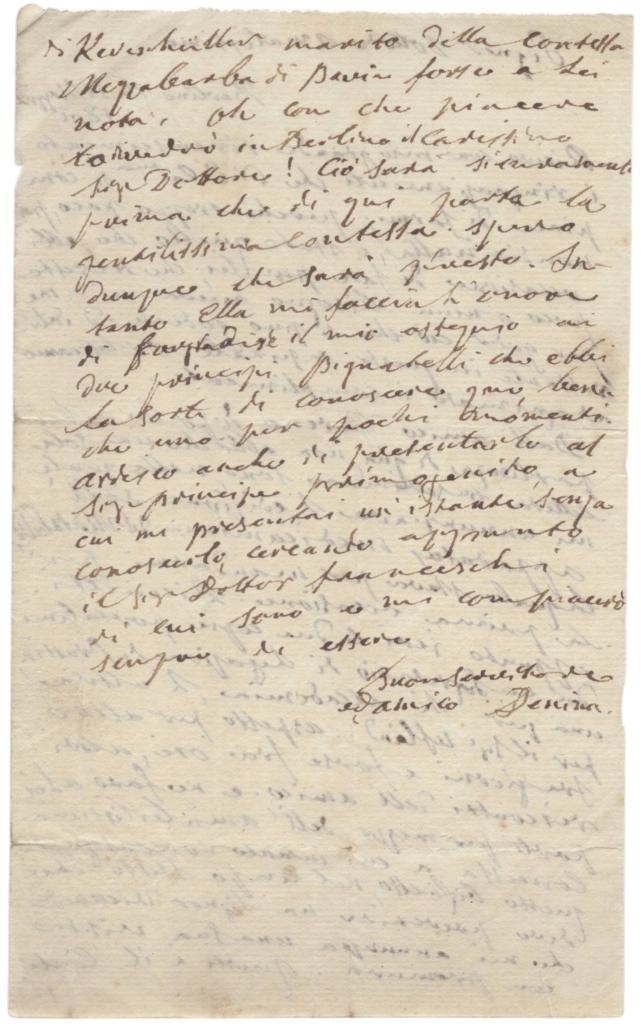 di Keveshüller marito della Contessa
Mezzabarba di Pavia forse a Lei
nota. Oh con che piacere
rivedrò in Berlino il Carissimo
Sigr Dottore! Ciò sarà sicuramente
prima che di qui parta la
gentilissima Contessa. Spero
dunque che sarà presto. In-
tanto Ella mi faccia l'onore
di il mio ossequio ai
due principi Pignatelli che ebbi
la sorte di conoscere quì, bensì
che uno per pochi momenti.
ardisco anche di presentarlo al
Sigr principe primogenito, a
cui mi presentai un istante, senza
conoscerlo, cercando appunto
il Sigr Dottor Franceschi
di cui sono e mi compiacerò
sempre di essere
Buon servitore
ed amico Denina.